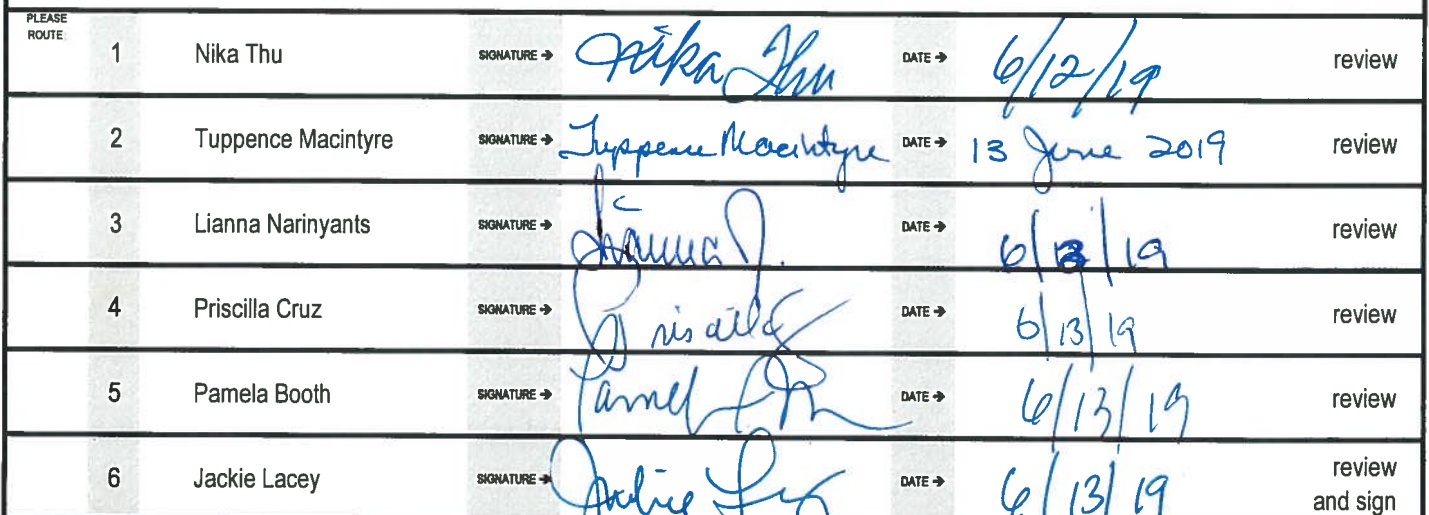 PLEASE
ROUTE:
1 Nika Thu SIGNATURE → Nika Thu DATE → 6/12/19 review
2 Tuppence Macintyre SIGNATURE → Tuppence Macintyre DATE → 13 June 2019 review
3 Lianna Narinyants SIGNATURE → Lianna DATE → 6/13/19 review
4 Priscilla Cruz SIGNATURE → DATE → 6/13/19 review
5 Pamela Booth SIGNATURE → DATE → 6/13/19 review
6 Jackie Lacey SIGNATURE → Jackie Lacey DATE → 6/13/19 review
and sign